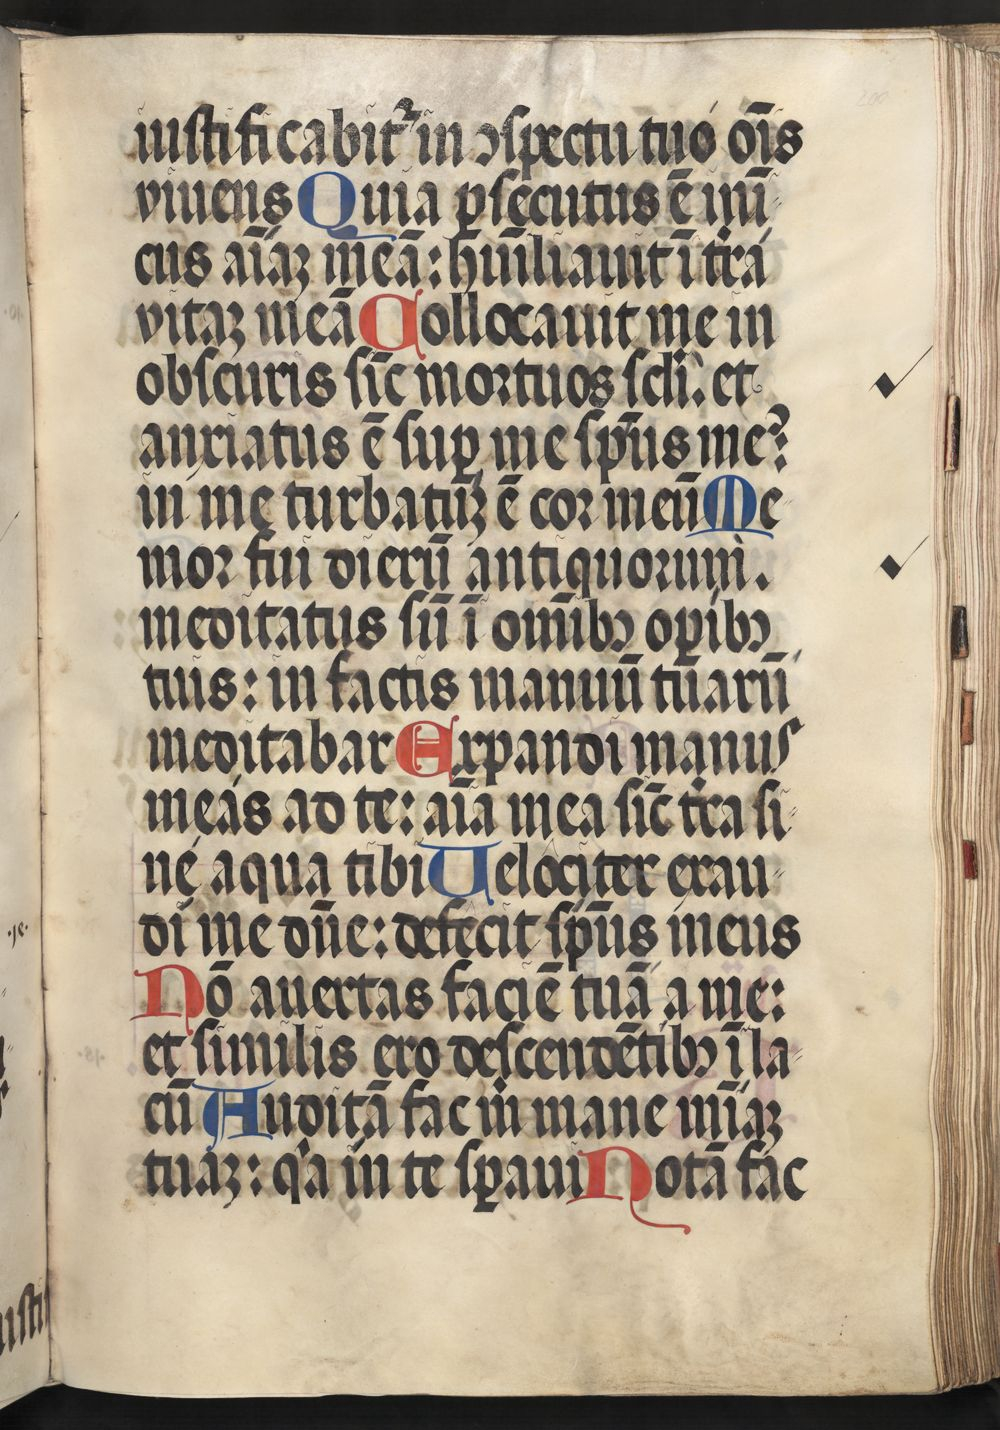 iustificabit᷑ in ↄspectu tuo oīs
viuens Quia p̱secutus ē inī-
cus aīaꝫ meā: humīliauit ī tr̄a
vitaꝫ meā Collocauit me in
obscuris sic̄ mortuos scl̄i. et
anxiatus ē suꝑ me sp̄us me᷒:
in me turbatuꝫ ē cor meū Me-
mor fui dierū antiquorum.
meditatus sū ī om̄ibꝫ oꝑibꝫ
tuis: in factis manuū tuarū
meditabar Expandi manus
meas ad te: aīa mea sic̄ tr̄a si-
ne aqua tibi Uelociter exau-
di me dn̄e: defecit sp̄us meus
Nō auertas faciē tuā a me:
et similis ero descendētibꝫ ī la-
cū Auditā fac m̄ mane mīaꝫ
tuaꝫ: qa in te sꝑaui Notā fac